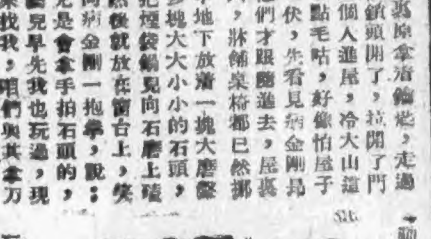 原拿着鑰匙，走過
鎖頭開了，拉開了門
個人進屋，冷大山這
點毛咕，好像怕屋子
伏，先看見病金剛昆
們才跟隨進去，屋裏
，牀舖桌椅都已然挪
地下放着一塊大磨盤
塊大大小小的石頭，
煙袋鍋兒向石磨上磕
後就放在窗台上，笑
病金剛一抱拳，說：
是會拿手拍石頭的，
兒早先我也玩過，現
找我，咱們與其拿万